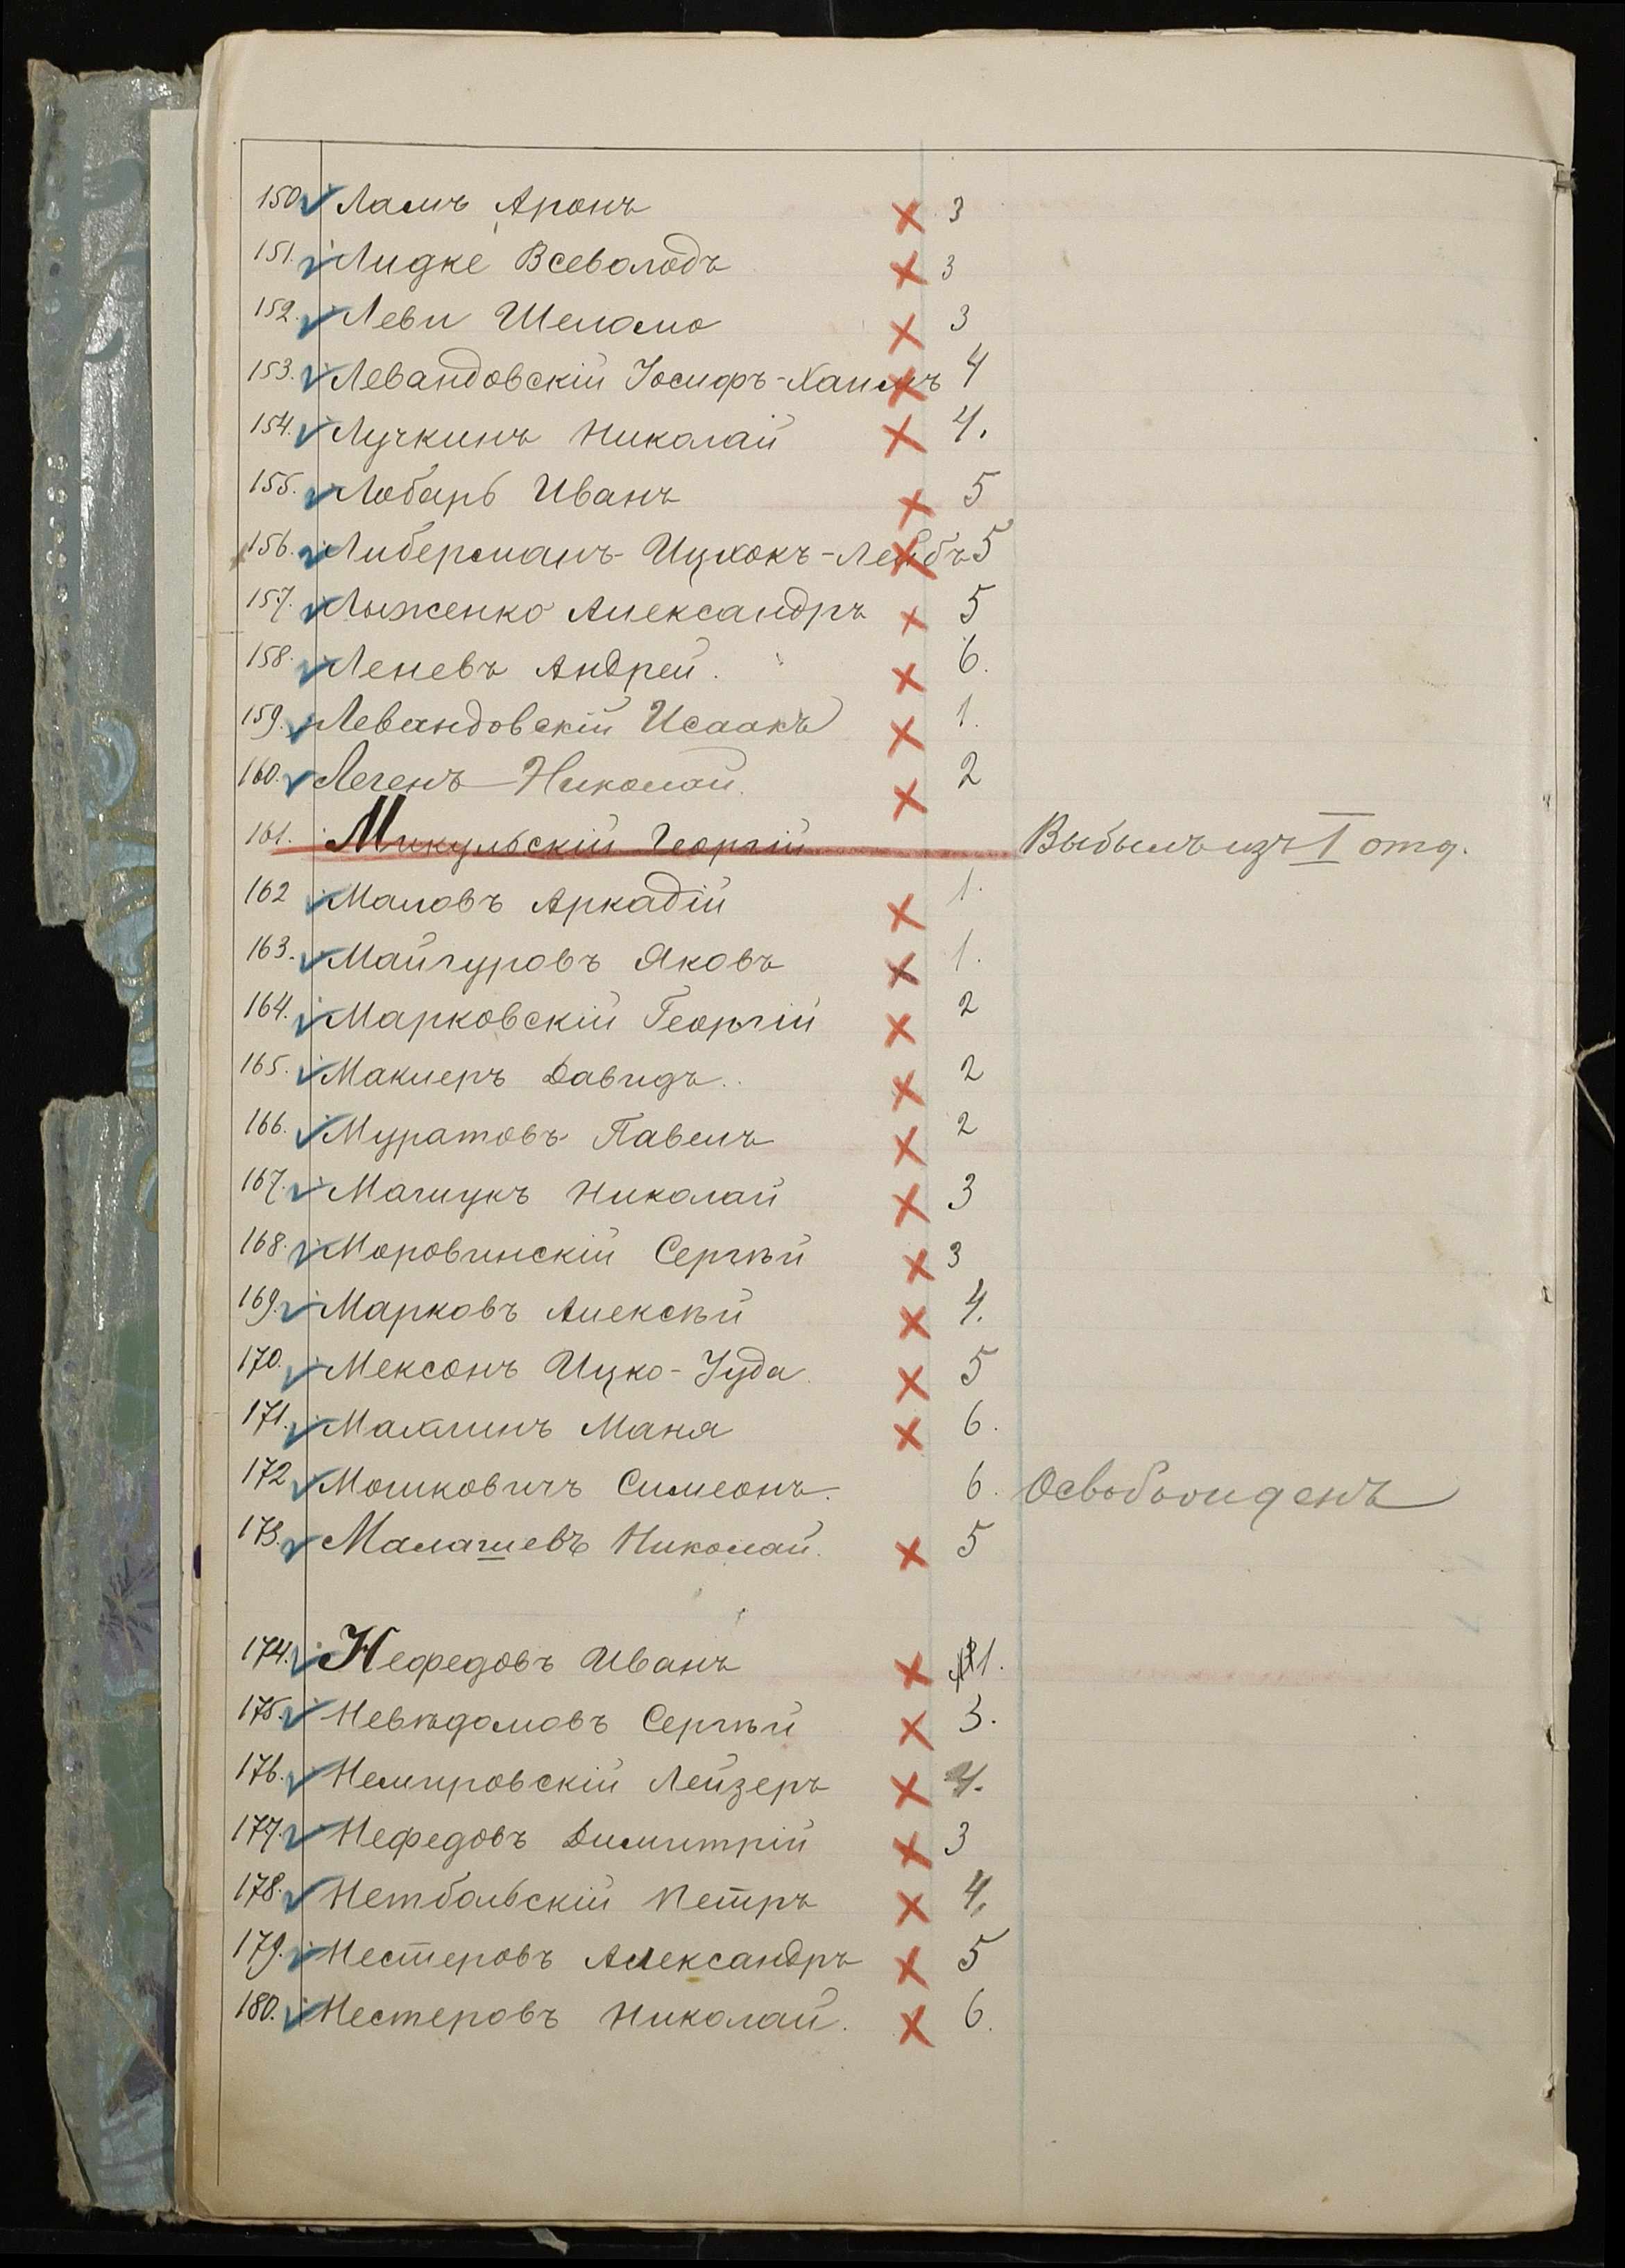 150. Ламъ Аронъ 3
151. Лидке Всеволодъ 3
152. Леви Шеломо 3
153. Левандовскій Іосифъ-Хаимъ 4
154. Лучкинъ Николай 4.
155. Лобарь Иванъ 5
156. Либерманъ Ицхокъ-Лейбъ 5
157. Лыженко Александръ 5
158. Леневъ Андрей. 6.
159. Левандовскій Исаакъ 1.
160. Легенъ Николай. 2
161. Микульскій Георгій Выбылъ изъ I отд.
162 Маловъ Аркадій 1.
163. Майгуровъ Яковъ 1.
164. Марковскій Георгій 2
165. Маклеръ Давидъ. 2
166. Муратовъ Павелъ 2
167. Мацукъ Николай 3
168. Моровинскій Сергѣй 3
169. Марковъ Алексѣй 4.
170. Мексонъ Ицко-Іуда. 5
171. Махлинъ Маня 6.
172 Мошковичъ Симеонъ. 6. Освобожденъ
173. Малашевъ Николай. 5
174. Нефедовъ Иванъ 1.
175. Невѣдомовъ Сергѣй 3.
176. Немировскій Лейзеръ 4.
177. Нефедовъ Димитрій 3
178. Нетбальскій Петръ 4.
179. Нестеровъ Александръ 5
180. Нестеровъ Николай. 6.